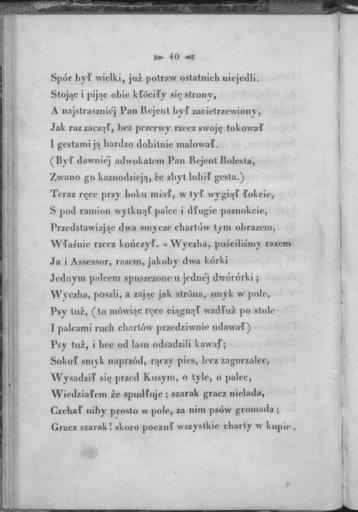 40
Spór był wielki, już potraw ostatnich niejedli.
Stojąc i pijąc obie kłóciły się strony,
A najstraszniéj Pan Rejent był zacietrzewiony,
Jak raz zaczął, bez przerwy rzecz swoję tokował
I gestami ją bardzo dobitnie malował.
(Był dawniéj adwokatem Pan Rejent Bolesta,
Zwano go kaznodzieją, że zbyt lubił gesta.)
Teraz ręce przy boku miał, w tył wygiął łokcie,
S pod ramion wytknął palce i długie paznokcie,
Przedstawiając dwa smycze chartów tym obrazem,
Właśnie rzecz kończył. « Wyczha, puściliśmy razem
Ja i Assessor, razem, jakoby dwa kórki
Jednym palcem spuszczone u jednéj dwórórki ;
Wyczha, poszli, a zając jak stróna, smyk w pole,
Psy tuż, (to mówiąc ręce ciągnął wzdłuż po stole
I palcami ruch chartów przedziwnie udawał)
Psy tuż, i hec od lasu odsadzili kawał;
Sokoł smyk naprzód, rączy pies, lecz zagorzalec,
Wysadził się przed Kusym, o tyle, o palec,
Wiedziałem że spudłuje ; szarak gracz nielada,
Czchał niby prosto w pole, za nim psów gromada ;
Gracz szarak! skoro poczuł wszystkie charty w kupie,